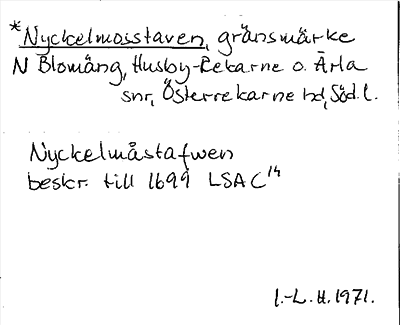 *Nyckelmosstaven, gränsmärke
N Blomäng, Husby-Rekarne o. Ärla
snr, Österrekarne hd, Söd. l.
Nyckelmåstafwen
beskr. till 1699 LSA C14
I.-L. H. 1971.